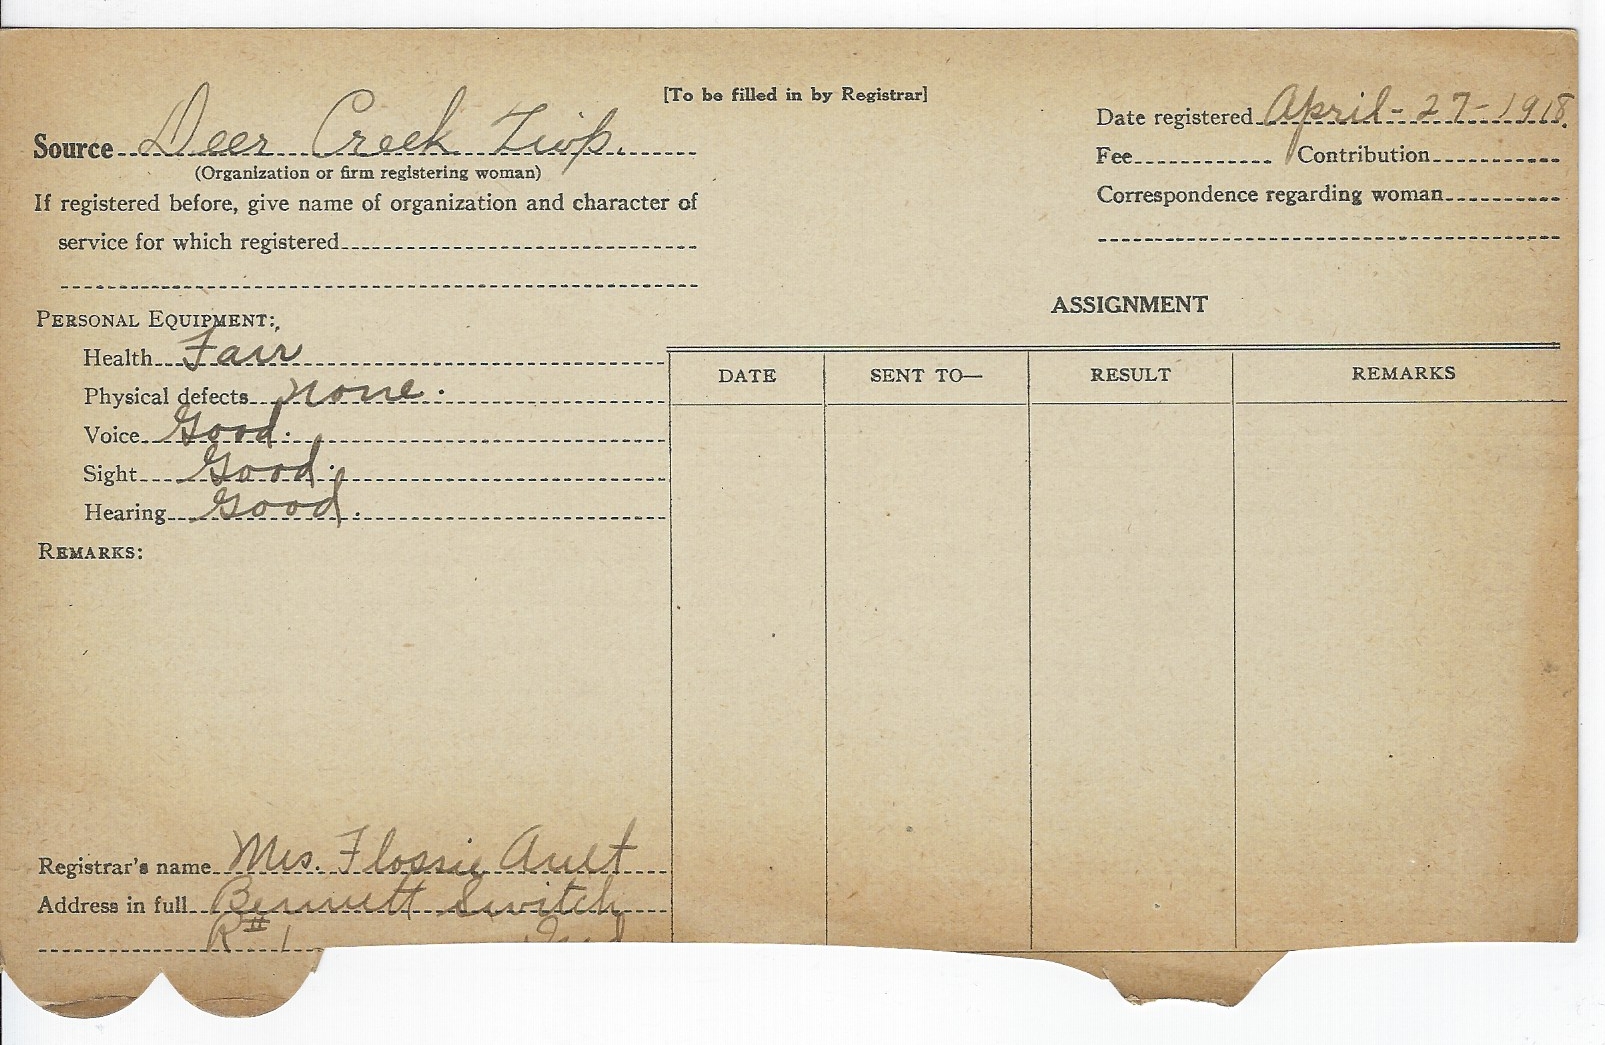 [To be filled in by Registrar]
Source Deer Creek Twp.
(Organization or firm registering woman)
If registered before, give name of organization and character of
service for which registered
Date registered April-27-1918.
Fee Contribution
Correspondence regarding woman
PERSONAL EQUIPMENT:
Health Fair
Physical defects none.
Voice Good.
Sight Good.
Hearing Good.
REMARKS:
ASSIGNMENT
DATE SENT TO— RESULT REMARKS
Registrar's name Mrs. Flossie Ault
Address in full Bennett Switch
R# 1 Ind